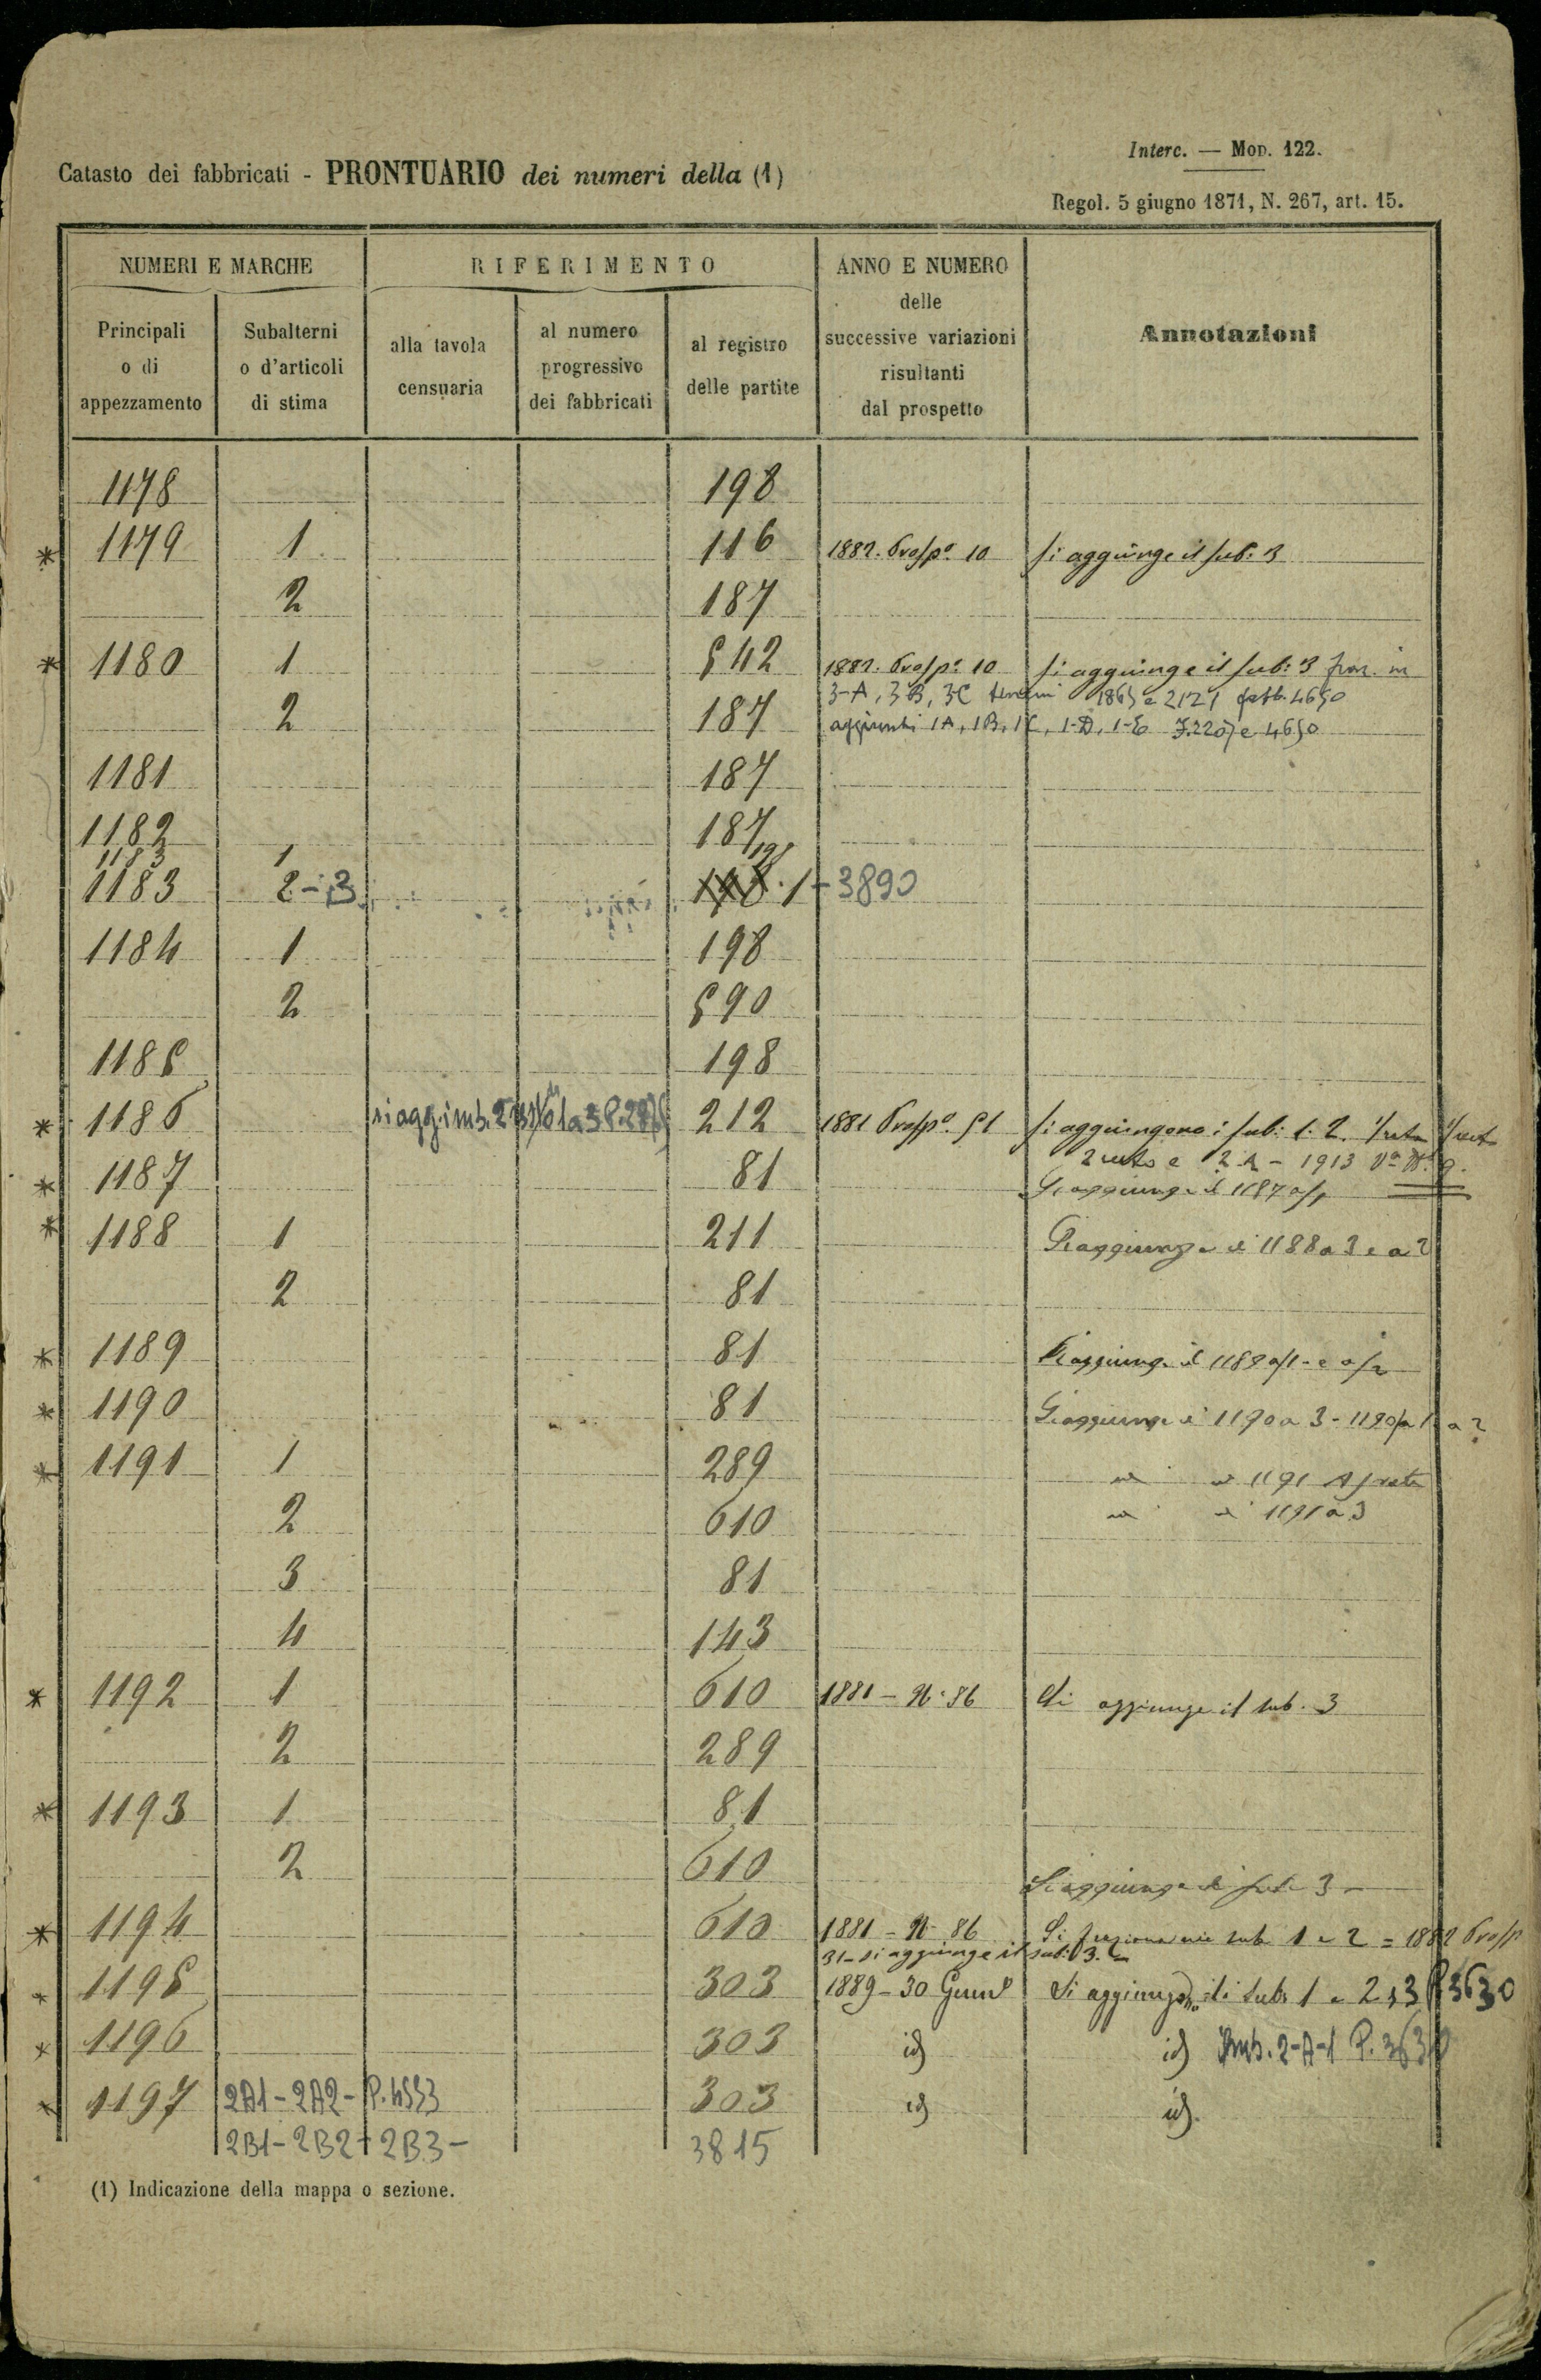 Interc. — Mod. 122.
Catasto dei fabbricati - PRONTUARIO dei numeri della (1)
Regol. 5 giugno 1871, N. 267, art. 15.
NUMERI E MARCHE RIFERIMENTO ANNO E NUMERO delle successive variazioni risultanti dal prospetto Annotazioni
Principali o di appezzamento Subalterni o d'articoli di stima alla tavola censuaria al numero progressivo dei fabbricati al registro delle partite
1178 198
* 1179 1 116 1882. Prosp.º 10 Si aggiunge il sub: 3
2 187
* 1180 1 542 1882. Prosp.º 10 Si aggiunge il sub: 3
3-A, 3B, 3C 1865 e 2121 4650
2 187 aggiunti 1A, 1B, 1C, 1-D, 1-E e 4650
1181 187
1182 187
1183 1 198
1183 2-3 198 1-3890
1184 1 198
2 590
1185 198
* 1186 212 1881 Prosp.º 51 Si aggiungono i sub: 1. 2.
2 e 2A - 1913
* 1187 81 Si aggiunge il 1187
* 1188 1 211 Si aggiunge il 1188 a 3 e a 2
2 81
* 1189 81 Si aggiunge il 1189 a/1 - e a/2
* 1190 81 Si aggiunge il 1190 a 3 - 1190/a 1 a 2
* 1191 1 289 1191 A
2 610 1191 a 3
3 81
4 143
* 1192 1 610 1881 - N. 86 Si aggiunge il sub. 3
2 289
* 1193 1 81
2 610 Si aggiunge il sub 3 -
* 1194 610 1881 - N. 86 Si fraziona nei sub 1 e 2 = 1882 Prosp
31 - si aggiunge il sub: 3.
* 1195 303 1889 - 30 Si aggiungono i sub. 1 e 2 e 3 P. 3630
* 1196 303 id) id) Sub. 2-A-1 P. 3630
* 1197 2A1 - 2A2 - P. 4553 303 id) id).
2B1 - 2B2 - 2B3 - 3815
(1) Indicazione della mappa o sezione.